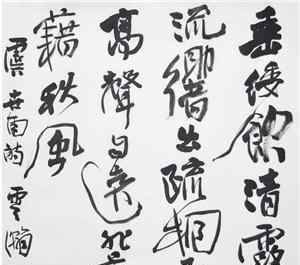 垂緌飲清露
流響出疏桐
高聲自遠非
籍秋風
虞世南詩 雲